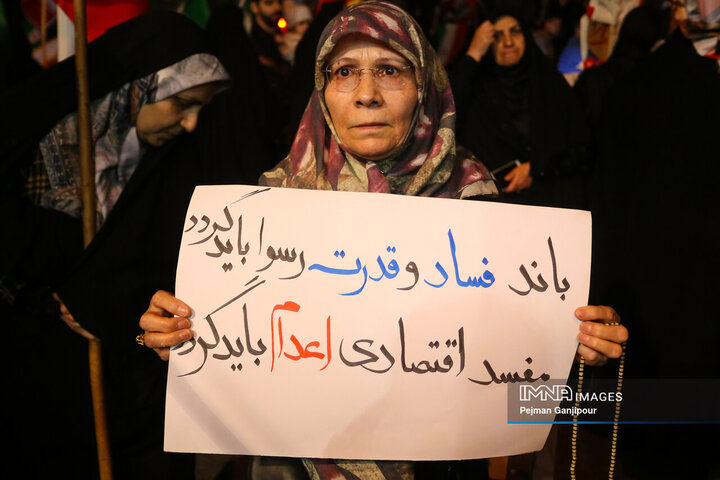 باند فساد و قدرت رسوا باید گردد
مفسد اقتصادی اعدام باید گردد
IMNA IMAGES
Pejman Ganjipour